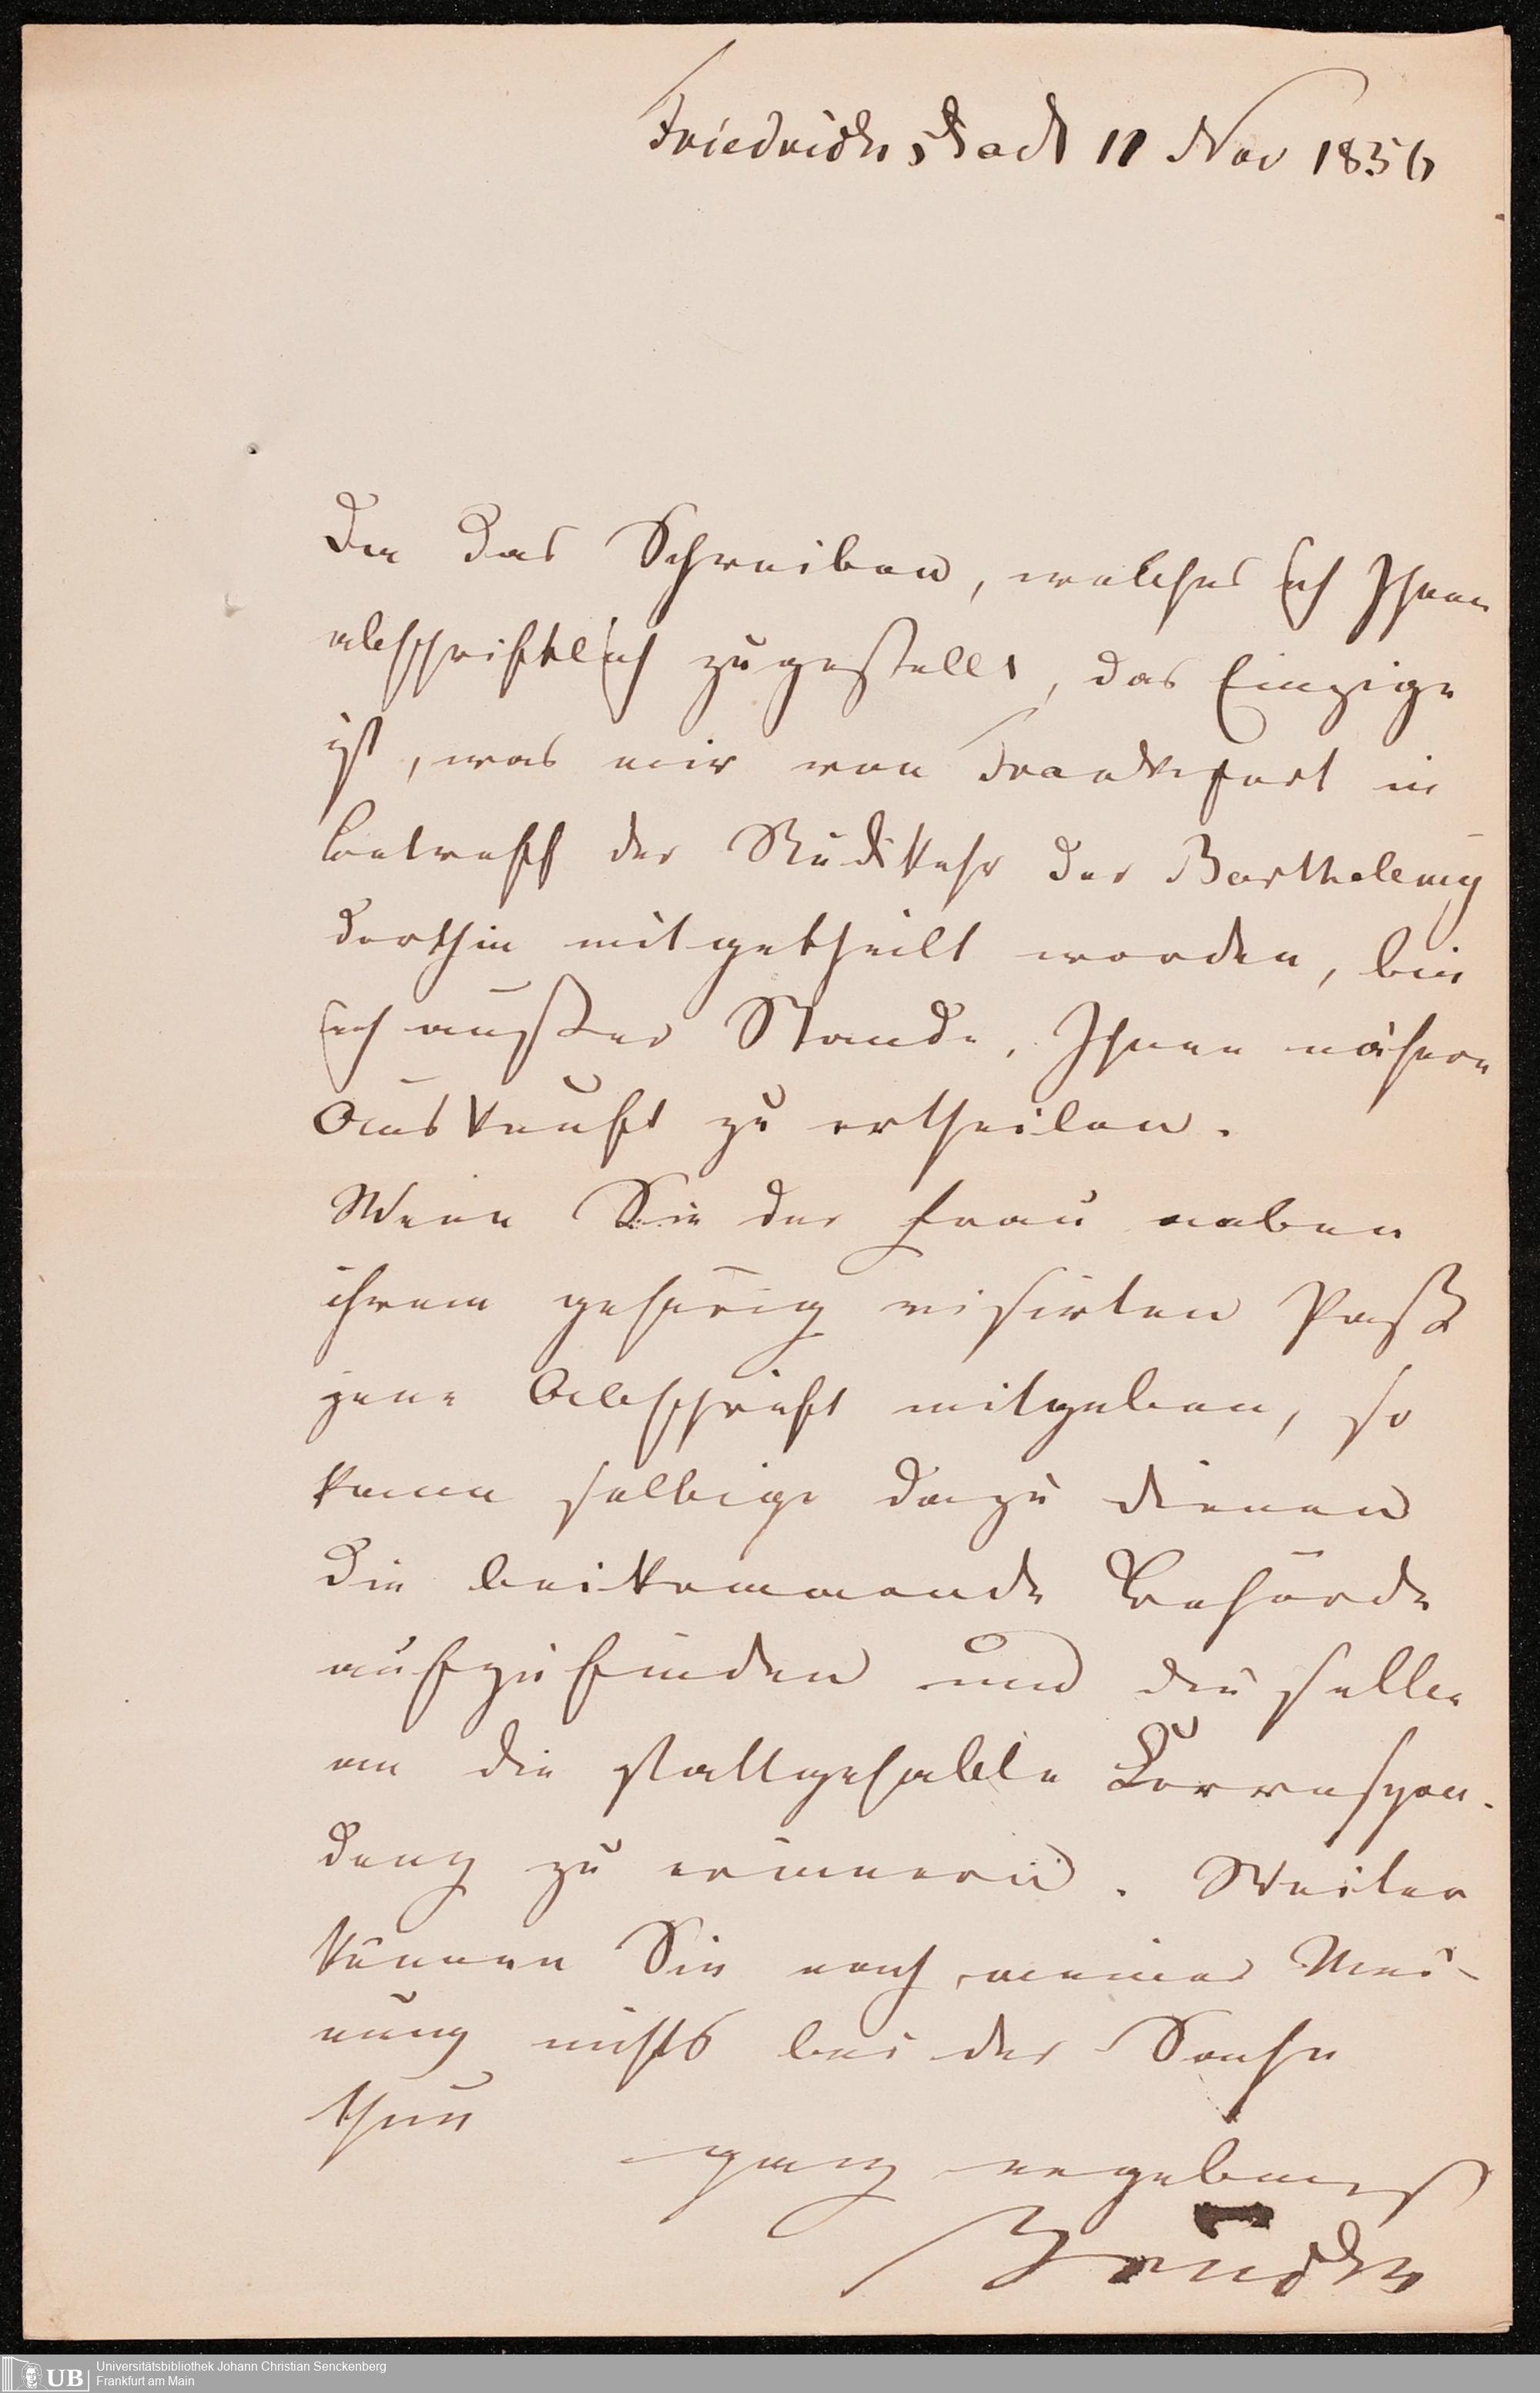 Friedrichstadt 11 Nov 1856
Da das Schreiben, welches ich Ihnen
abschriftlich zugestellt, das Einzige
ist, was mir von Frankfurt in
betreff der Rückkehr der Barthelemy
dorthin mitgetheilt worden, bin
ich außer Stande, Ihnen nähere
Auskunft zu ertheilen.
Wenn Sie der Frau neben
ihrem gehörig visirten Paß
jene Abschrift mitgeben, so
kann selbige dazu dienen
die beikommende Behörde
aufzufinden und dieselbe
an die stattgehabte Correspon-
denz zu erinnern. Weiter
können Sie nach meiner Mei-
nung nichts bei der Sache
thun
ganz ergebenst
UB
Universitätsbibliothek Johann Christian Senckenberg
Frankfurt am Main